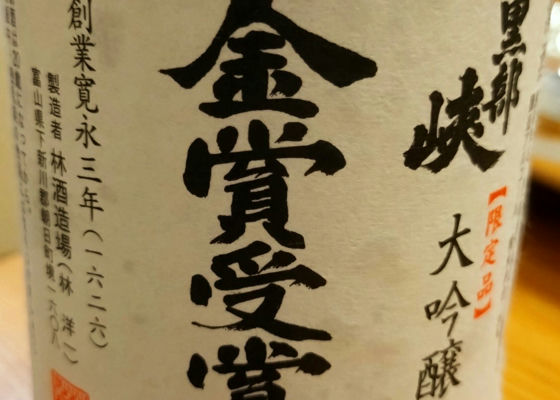 黒部
峡
【限定品】
大吟醸
金賞受賞
創業寛永三年(一六二六)
製造者 林酒造場(林 洋一)
富山県下新川郡朝日町境一六〇八